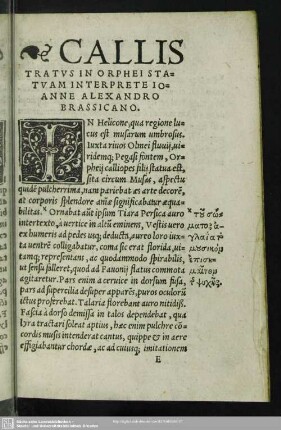 CALLIS
TRATVS IN ORPHEI STA-
TVAM INTERPRETE IO-
ANNE ALEXANDRO
BRASSICANO.
IN Helicone, qua regione lu-
cus est musarum umbrosus.
Iuxta riuos Olmei fluuij, ui-
ridemq; Pegasi fontem, Or-
phei calliopes filij statua est,
sita circum Musas, aspectu
quidē pulcherrima, nam pariebat æs arte decorē,
at corporis splendore animę significabatur æqua-
bilitas. Ornabat aūt ipsum Tiara Persica auro
intertexto, à uertice in altū eminens, Vestis uero
ex humeris ad pedes usq; deducta, aureo loro iux-
ta uentrē colligabatur, coma sic erat florida, ui-
tamq; repręsentans, ac quodammodo spirabilis,
ut sensū falleret, quod ad Fauonij flatus commota
agitaretur. Pars enim a ceruice in dorsum fusa,
pars ad supercilia desuper apparēs, puros oculorū
ictus proferebat. Talaria florebant auro nitidiss.
Fascia à dorso demissa in talos dependebat, qua
lyra tractari soleat aptius, hæc enim pulchre cō-
cordis musis intenderat cantus, quippe & in aere
effigiabantur chordæ, ac ad cuiusq; imitationem
E